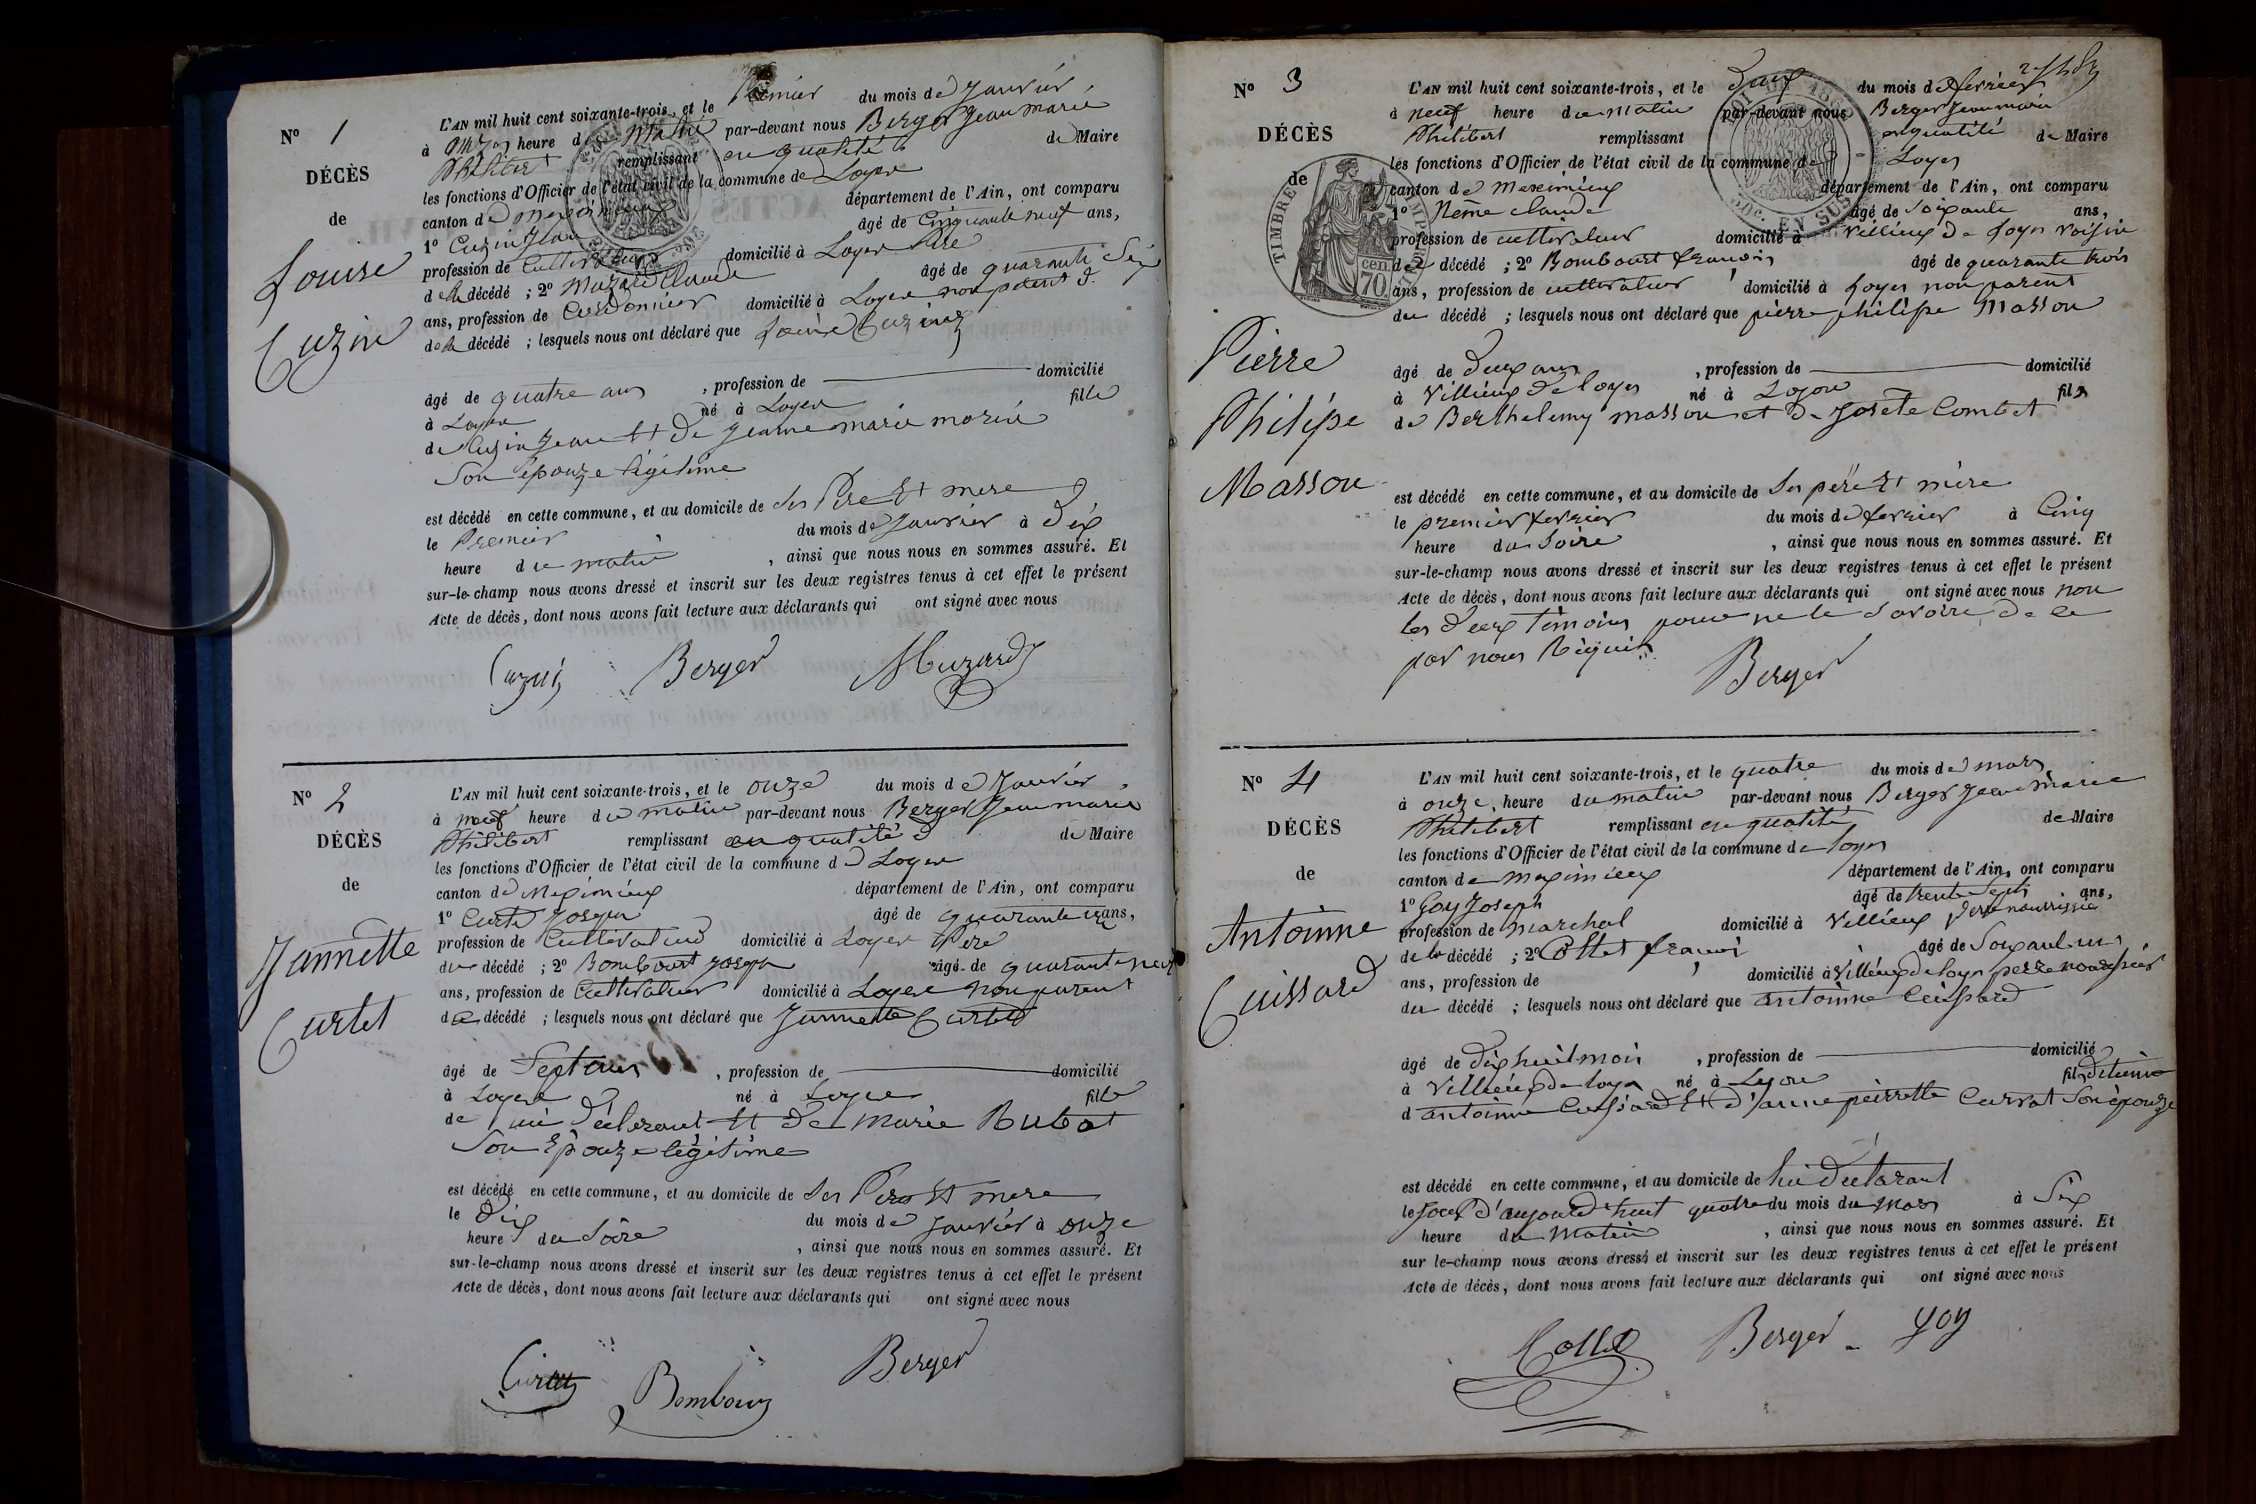 N° 1
DÉCÈS
de
Louise
Cuzin
L'AN mil huit cent soixante-trois, et le Premier du mois de Janvier
à onze heure du Matin par-devant nous Berger Jean marie
Philibert remplissant en qualité de Maire
les fonctions d'Officier de l'état civil de la commune de Loyes
canton de département de l'Ain, ont comparu
1° Cuzin Jean âgé de Cinquante neuf ans,
profession de Cultivateur domicilié à Loyes Père
de la décédé ; 2° Muzard Claude âgé de quarante Six
ans, profession de Cordonnier domicilié à Loyes non parent d
de la décédé ; lesquels nous ont déclaré que Louise Cuzin
âgé de quatre ans , profession de domicilié
à Loyes né à Loyes fille
de Cuzin Jean Et De Jeanne marie morin
Son épouze légitime
est décédé en cette commune, et au domicile de Ses Père Et mere
le Premier du mois de Janvier à dix
heure du matin , ainsi que nous nous en sommes assuré. Et
sur-le-champ nous avons dressé et inscrit sur les deux registres tenus à cet effet le présent
Acte de décès, dont nous avons fait lecture aux déclarants qui ont signé avec nous
Cuzin Berger Muzard
N° 2
DÉCÈS
de
Jannette
Curtet
L'AN mil huit cent soixante-trois, et le onze du mois de Janvier
à neuf heure du matin par-devant nous Berger Jean marie
Philibert remplissant en qualité de Maire
les fonctions d'Officier de l'état civil de la commune de Loyes
canton de Meximieux département de l'Ain, ont comparu
1° Curtet Joseph âgé de quarante ans,
profession de Cultivateur domicilié à Loyes Père
du décédé ; 2° Bombourt Joseph âgé de quarante neuf
ans, profession de Cultivateur domicilié à Loyes non parent
de décédé ; lesquels nous ont déclaré que Jannette Curtet
âgé de Sept ans , profession de domicilié
à Loyes né à Loyes fille
de lui déclarant Et de Marie Rubat
Son Épouze légitime
est décédé en cette commune, et au domicile de Ses Pere Et mere
le dix du mois de Janvier à onze
heure du Soire , ainsi que nous nous en sommes assuré. Et
sur-le-champ nous avons dressé et inscrit sur les deux registres tenus à cet effet le présent
Acte de décès, dont nous avons fait lecture aux déclarants qui ont signé avec nous
Bombour Berger
N° 3
DÉCÈS
de
TIMBRE IMPÉRIAL
70 cen
Pierre
Philipe
Masson
L'AN mil huit cent soixante-trois, et le Deux du mois de fevrier
à neuf heure du matin par-devant nous Berger Jean marie
Philibert remplissant en qualité de Maire
les fonctions d'Officier de l'état civil de la commune de Loyes
canton de Meximieux département de l'Ain, ont comparu
1° Néme claude âgé de Soixante ans,
profession de cultivateur domicilié à Villieux de Loyes voisin
du décédé ; 2° Bombourt francois âgé de quarante trois
ans, profession de cultivateur domicilié à Loyes non parent
du décédé ; lesquels nous ont déclaré que pierre philipe Masson
âgé de Deux ans , profession de domicilié
à Villieux de loyes né à Lyon fils
de Berthelemy Masson et de Josete Combet
est décédé en cette commune, et au domicile de Ses père Et mère
le premier fevrier du mois de fevrier à Cinq
heure du Soire , ainsi que nous nous en sommes assuré. Et
sur-le-champ nous avons dressé et inscrit sur les deux registres tenus à cet effet le présent
Acte de décès, dont nous avons fait lecture aux déclarants qui ont signé avec nous non
les deux témoins pour ne le Savoire de ce
par nous Requis
Berger
N° 4
DÉCÈS
de
Antoinne
Cuissard
L'AN mil huit cent soixante-trois, et le quatre du mois de mars
à onze heure du matin par-devant nous Berger Jean marie
Philibert remplissant en qualité de Maire
les fonctions d'Officier de l'état civil de la commune de loyes
canton de meximieux département de l'Ain, ont comparu
1° Goy Joseph âgé de trente Sept ans,
profession de marchal domicilié à Villieux père nourrissié
de la décédé ; 2° Collet francois âgé de Soixante un
ans, profession de domicilié à Villieux de loyes perre nourrissier
du décédé ; lesquels nous ont déclaré que antoinne Cuissard
âgé de dix huit moi , profession de domicilié
à Villieux de loyes né à Lyon fils
d antoinne Cuissard Et d'anne pierrette Currat Son épouze
est décédé en cette commune, et au domicile de lui déclarant
le jour d'aujourd'huit quatre du mois du mars à Six
heure du Matin , ainsi que nous nous en sommes assuré. Et
sur le-champ nous avons dressé et inscrit sur les deux registres tenus à cet effet le présent
Acte de décès, dont nous avons fait lecture aux déclarants qui ont signé avec nous
Collet Berger goy